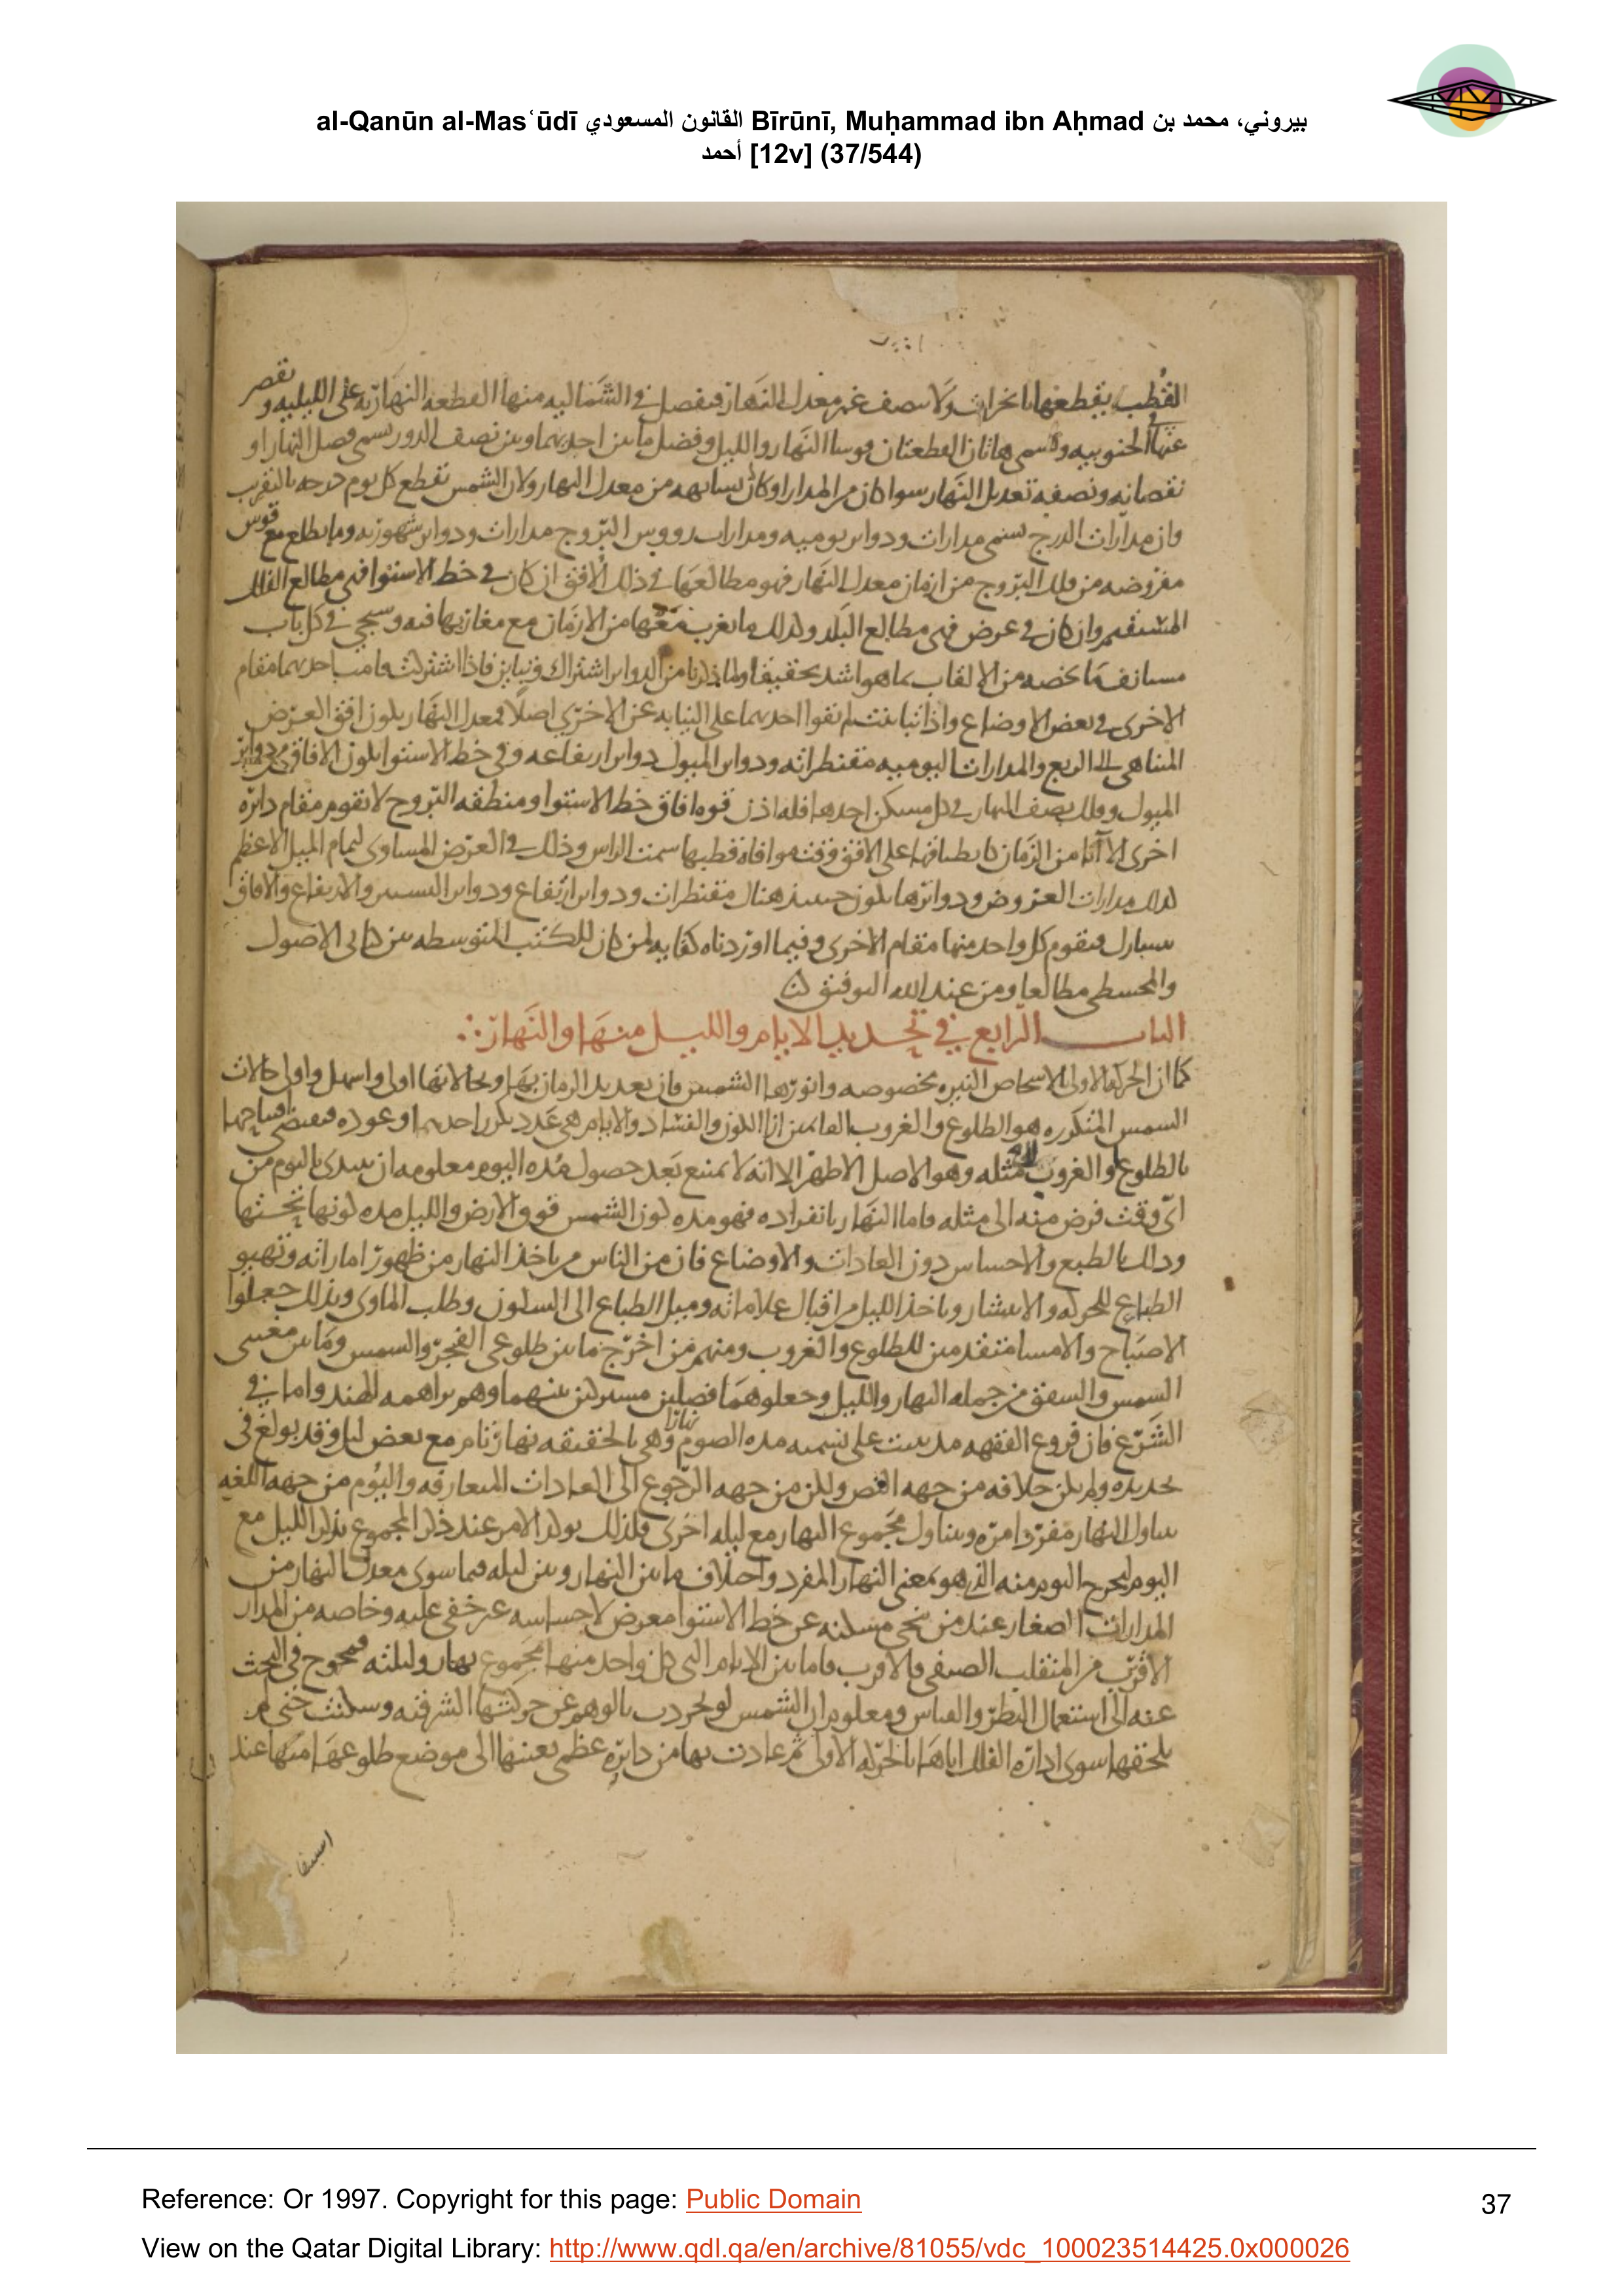 al-Qanūn al-Masʿūdī القانون المسعودي Bīrūnī, Muḥammad ibn Aḥmad بيروني، محمد بن
أحمد [12v] (37/544)
القطب يقطعها بانحراف ولا ينصف غير معدل النهار فيفصل في الشماليه منها القطعه النهاريه على الليليه و تقصر
عنها الجنوبيه و تسمى هاتان القطعتان قوسا النهار والليل وفضل ما بين احديهما وبين نصف الدور يسمى فضل النهار او
نقصانه ونصفه تعديل النهار سوا كان من المدار او كان من معدل النهار ولان الشمس تقطع كل يوم درجه بالتقريب
فان مدارات الدرج تسمى مدارات ودواير يوميه ومدارات رووس البروج مدارات ودواير شهوريه وما يطلع مع قوس
مفروضه من فلك البروج من ازمان معدل النهار فهو مطالعها في ذلك الافق ان كان في خط الاستوا فهى مطالع الفلك
المستقيم وان كان في عرض فهى مطالع البلد وكذلك ما يغرب معها من الازمان مع مغاربها فيه وسيجي في كل باب
مستانف ما يخصه من الالقاب بما هو اشد تحقيقا ولما ذكرنا من الدواير اشتراك وتباين فاذا اشتركت قامت احديهما مقام
الاخرى في بعض الاوضاع واذا تباينت لم تقو احديهما على النيابه عن الاخرى اصلا فمعدل النهار يكون افق العرض
المتناهى الى الربع والمدارات اليوميه مقنطراته ودواير الميول دواير ارتفاعه وفي خط الاستوا تكون الافاق من دواير
الميول وفلك نصف النهار في كل مسكن احدها فله اذن قوه افاق خط الاستوا ومنطقه البروج لا تقوم مقام دائره
اخرى الا آنا من الزمان كانطباقها على الافق وقت موافاه قطبها سمت الراس وذلك في العرض المساوى لتمام الميل الاعظم
كذلك مدارات العروض ودوايرها تكون حينئذ هناك مقنطرات ودواير ارتفاع ودواير السموت والارتفاع والافاق
تتبادل فيقوم كل واحد منها مقام الاخرى وفيما اوردناه كفايه لمن كان للكتب المتوسطه بين كتابى الاصول
والمجسطى مطالعا ومن عند الله التوفيق
الباب الرابع في تحديد الايام والليل منها والنهار
كما ان الحركه الاولى الاشخاص النيره مخصوصه وانورها الشمس فان تعديد الزمان بها وبحالاتها اولى واسهل واولى حالات
الشمس المتكرره هو الطلوع والغروب العامين اناا الكون والفساد والايام هي عدد تكرر احديهما وعوده فيقتضى افتتاحها
بالطلوع او الغروب الى مثله وهو الاصل الاظهر الا انه لا يمتنع بعد حصول مده اليوم معلومه ان يبتدى باليوم من
اى وقت فرض منه الى مثله فاما النهار بانفراده فهو مده كون الشمس فوق الارض والليل مده كونها تحتها
وذلك بالطبع والاحساس دون العادات والاوضاع فان من الناس من ياخذ النهار من ظهور اماراته وتهيو
الطباع للحركه والانتشار وياخذ الليل من اقبال علاماته وميل الطباع الى السكون وطلب الماوى وبذلك جعلوا
الاصباح والامسا متقدمين للطلوع والغروب ومنهم من اخرج ما بين طلوعى الفجر والشمس وما بين مغيبى
الشمس والشفق من جمله النهار والليل وجعلوهما فصلين مشتركين بينهما وهم براهمه الهند واما في
الشرع فان فروع الفقهه قد بنيت على تسميه مده الصوم نهارا وهي بالحقيقه نهار تام مع بعض ليل وقد بولغ في
تحديده ولم يكن خلافه من جهه النص ولكن من جهه الرجوع الى العادات المتعارفه واليوم من جهه اللغه
يتناول النهار مفردا مره ويتناول مجموع النهار مع ليله اخرى فلذلك يوكد الامر عند ذكر المجموع بذكر الليل مع
اليوم ليخرج اليوم منه الذي هو بمعنى النهار المفرد واختلاف ما بين النهار وبين ليله فيما سوى معدل النهار من
المدارات الصغار عند من تنحى مسكنه عن خط الاستوا معرض لاحساسه غير خفى عليه وخاصه من المدار
الاقرب من المنقلب الصيفى فالاقرب فاما بين الايام التى كل واحد منها مجموع نهار وليلته فمحوج في البحث
عنه الى استعمال النظر والقياس ومعلوم ان الشمس لو تجردت بالوهم عن حركتها الشرقيه وسكنت حتى لم
يلحقها سوى اداره الفلك اياها بالحركه الاولى ثم عادت بها من دايره عظمى بعينها الى موضع طلوعها منها عند
Reference: Or 1997. Copyright for this page: Public Domain
37
View on the Qatar Digital Library: http://www.qdl.qa/en/archive/81055/vdc_100023514425.0x000026